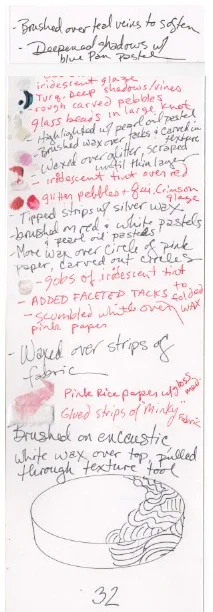 - Brushed over teal veins to soften
- Deepened shadows w/
blue Pan Pastel
iridescent glaze
Turq. Deep shadows/vines
rough carved pebbles
glass beads in large knot
- Highlighted w/ pearl oil pastel
- Brushed wax over folks & carved in
texture
- Waxed over glitter, scraped
until thin layer
- iridescent tint over red
glitter pebbles + Qui. Crimson
glaze
- Tipped strips w/ silver wax
- brushed on red & white pastels
& pearl oil pastels
- More wax over circle of pink
paper, carved out circles
- gobs of iridescent tint
- ADDED FACETED TACKS to
folded
wax
- scumbled white over
pink paper
- Waxed over strips of
fabric
Pink Rice paper w/ gloss
med.
Glued strips of "Minky"
Fabric
Brushed on encaustic
white wax over top, pulled
through texture tool
32